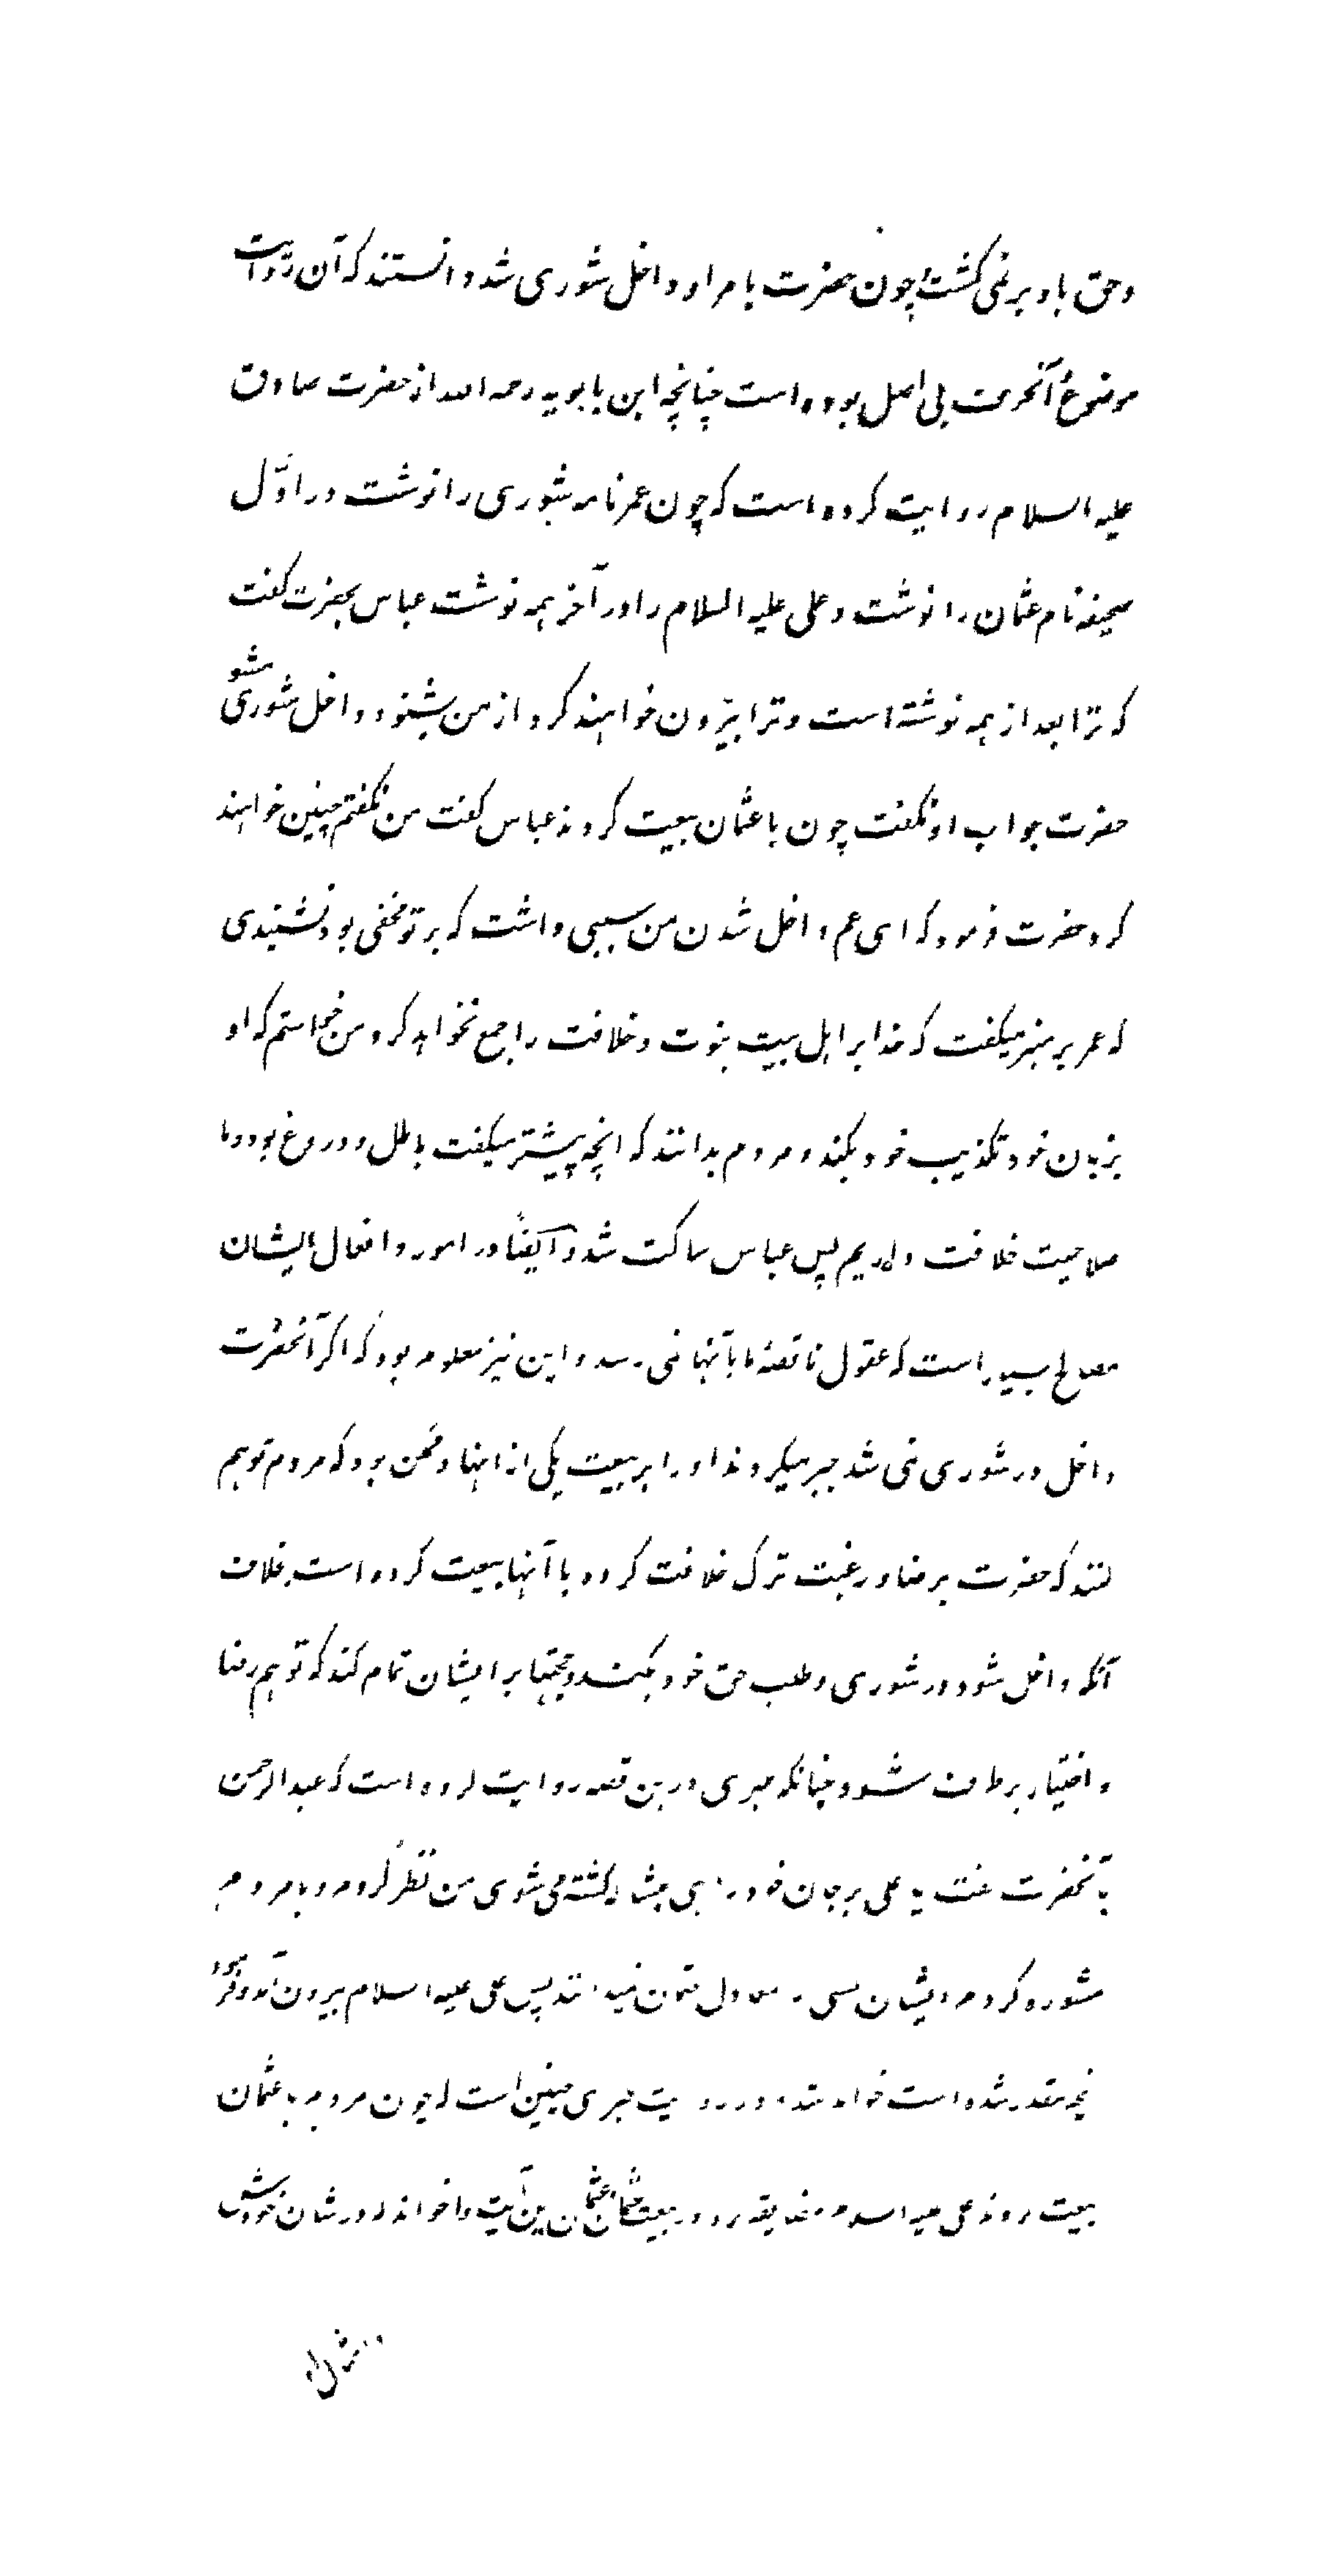 و حق باو بر نمی کشت چون حضرت بامر او داخل شوری شد دانستند که آن روایت
موضوع آنحرمت بی اصل بوده است چنانچه ابن بابویه رحمه الله از حضرت صادق
علیه السلام روایت کرده است که چون عمر نامه شوری را نوشت در اوّل
صحیفه نام عثمان را نوشت و علی علیه السلام را در آخر همه نوشت عباس بحضرت کفت
که ترا بعد از همه نوشته است و ترا بیرون خواهند کرد از من بشنو و داخل شوری مشو
حضرت جواب او نکفت چون با عثمان بیعت کردند عباس کفت من نکفتم چنین خواهند
کرد حضرت فرمود که ای عم داخل شدن من سببی داشت که بر تو مخفی بود نشنیدی
که عمر بر منبر میکفت که خدا برای اهل بیت نبوت و خلافت را جمع نخواهد کرد من خواستم که او
بزبان خود تکذیب خود بکند و مردم بدانند که انچه پیشتر میکفت باطل و دروغ بود و ما
صلاحیت خلافت داریم پس عباس ساکت شد و ایضاً در امور و افعال ایشان
مصالح بسیار است که عقول ناقصهٔ ما بآنها نمی رسد و این نیز معلوم بود که اکر آنحضرت
داخل در شوری نمی شد جبر میکردند او را بر بیعت یکی از اینها و ممکن بود که مردم توهم
کنند که حضرت برضا و رغبت ترک خلافت کرده با آنها بیعت کرده است بخلاف
آنکه داخل شود در شوری و طلب حق خود بکند و حجتها بر ایشان تمام کند که توهم رضا
و اختیار برطرف شود چنانکه طبری در این قصه روایت کرده است که عبد الرحمن
بآنحضرت کفت یا علی بر جان خود راهی مده که کشته می شوی من نظر کردم و با مردم
مشوره کردم ایشان کسی را معادل عثمان نمیدانند پس علی علیه السلام بیرون آمد و فرمود
آنچه مقدر شده است خواهد شد و در روایت طبری چنین است که چون مردم با عثمان
بیعت کردند علی علیه السلام مضایقه کرد در بیعت عثمان عثمان این آیت را خواند که در شان خودش